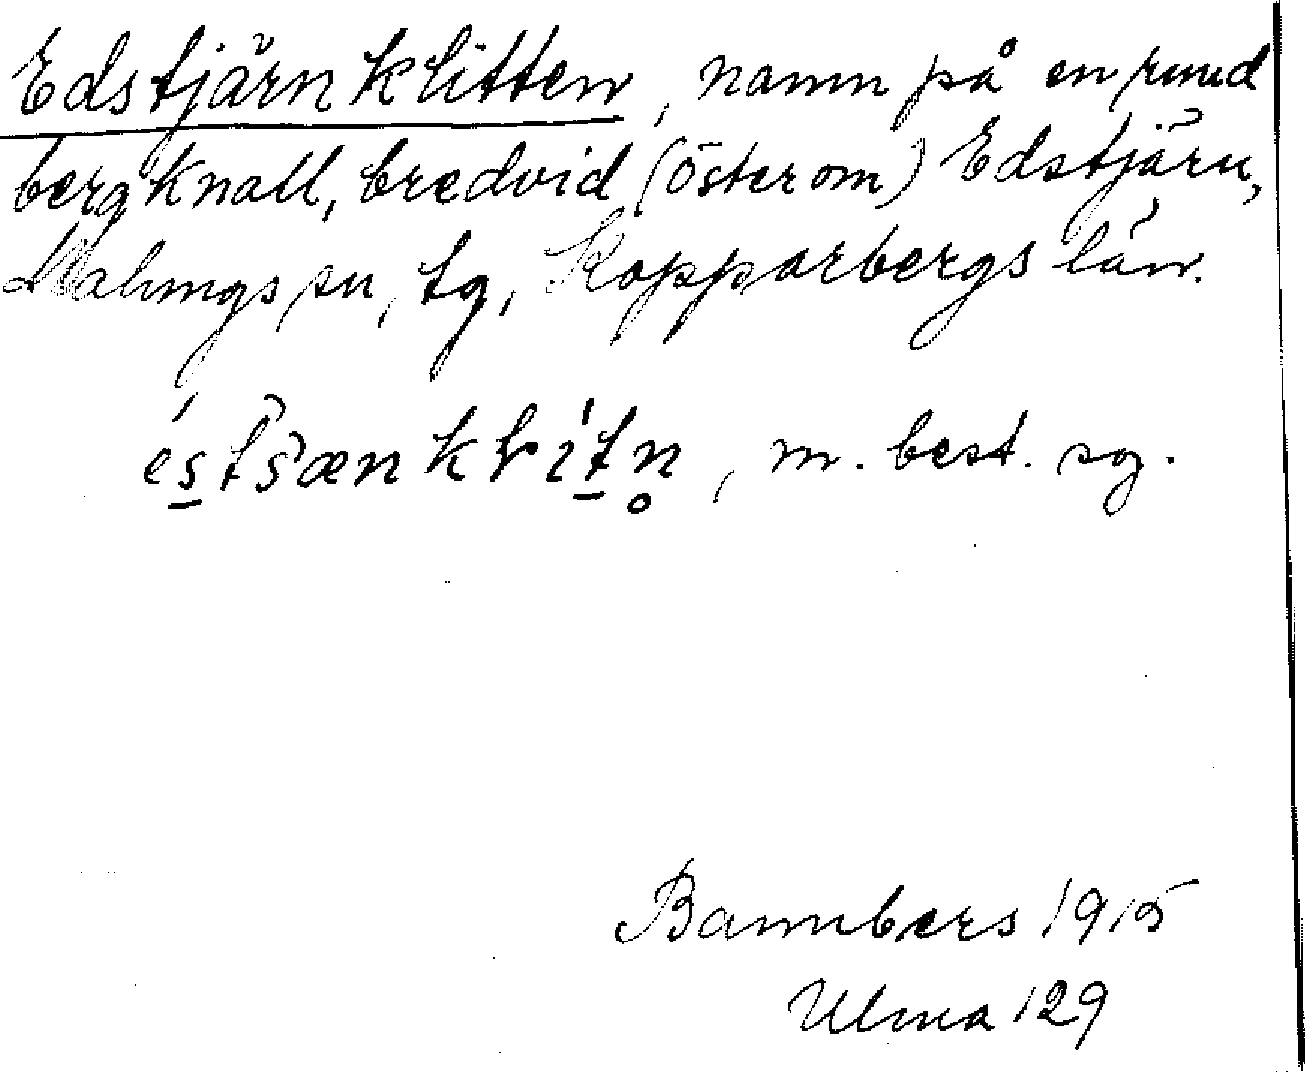 Edstjärnklitten, namn på en rund
bergknall, bredvid (öster om) Edstjärn,
Malungs sn, tg, Kopparbergs län.
m. best. sg.
Bannbers 1915
Ulma 129